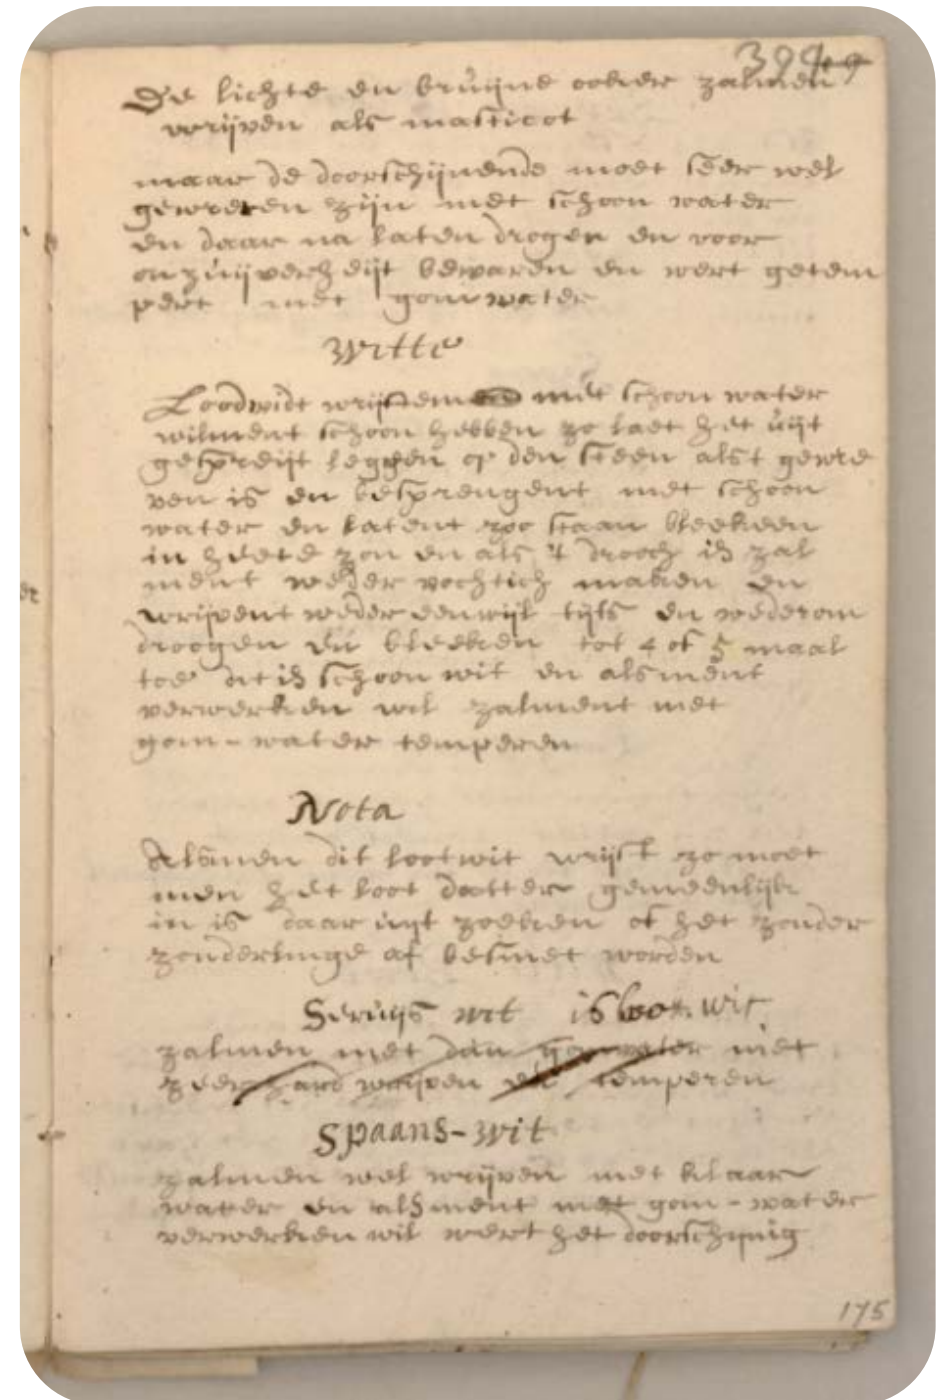 De lichte en bruijne ooker zalmen
wrijven als masticot
maar de doorschijnende moet seer wel
gewreven zijn met schoon water
en daar na laten drogen en voor
onzuijverheijt bewaren en wert getem
pert met gomwater
witte
Loodwidt wrijftemen met schoon water
wilment schoon hebben zo laet het uijt
gespreijt leggen op den steen alst gewre
ven is en besprengent met schoon
water en latent zoo staan bleeken
in heete zon en als 't drooch is zal
ment weder vochtich maken en
wrijvent weder eenwijl tijts en wederom
droogen en bleeken tot 4 of 5 maal
toe dit is schoon wit en alsment
verwerken wil zalment met
gom-water temperen
Nota
Alsmen dit lootwit wrijft zo moet
men het loot datter gemeenlijk
in is daar uijt zoeken of het zonder
zonderlinge af besmet worden
Seruijs wit is loot wit
zalmen met dun gomwater niet
zeer hard wrijven en temperen
Spaans-wit
zalmen wel wrijven met klaar
water en alsment met gom-water
verwerken wil wert het doorschijnig
175